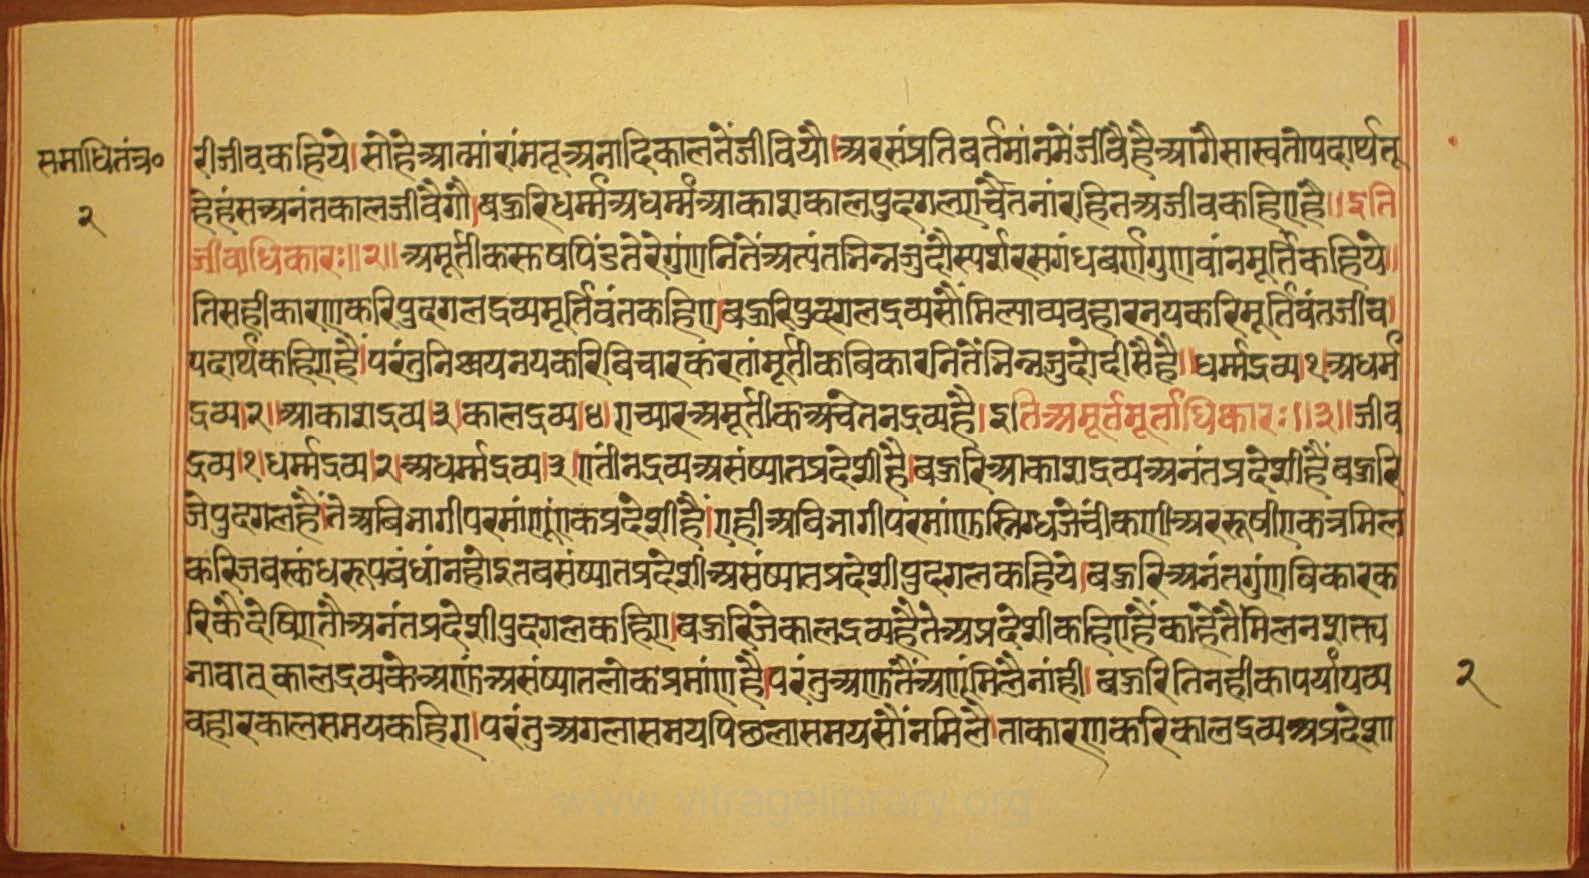 समाधितंत्र०
२
री जीव कहिये। सो हे आत्मांरांम तू अनादि कालतें जीवियौ। अर संप्रति वर्तमांनमें जीवै है आगै सास्वतो पदार्थ तू
हे हंस अनंत काल जीवैगौ। बहुरि धर्म्म अधर्म्म आकाश काल पुदगल ए चेतनां रहित अजीव कहिए है॥ इति
जीवाधिकारः॥२॥ अमूर्तीक पिंड तेरे गुंण नितें अत्यंत भिन्न जुदौ स्पर्श रस गंध वर्ण गुणवांन मूर्ति कहिये॥
तिसही कारण करि पुदगल द्रव्य मूर्तिवंत कहिए। बहुरि पुदगल द्रव्यसौं मिल्या व्यवहार नय करि मूर्तिवंत जीव।
पदार्थ कहिए है। परंतु निश्चय नय करि बिचार करतां मूर्तीक बिकारनितें भिन्न जुदो दीसै है॥ धर्म्म द्रव्य।१। अधर्म
द्रव्य।२। आकाश द्रव्य।३। काल द्रव्य।४। ए च्यार अमूर्तीक अचेतन द्रव्य है। इति अमूर्तमूर्ताधिकारः॥३॥ जीव
द्रव्य।१। धर्म्म द्रव्य।२। अधर्म्म द्रव्य।३। ए तीन द्रव्य असंष्यात प्रदेशी है। बहुरि आकाश द्रव्य अनंत प्रदेशी है बहुरि
जे पुदगल है। ते अबिभागी परमांणूं एक प्रदेशी है। एही अविभागी परमांणु स्निग्ध जे चीकणी अर रूषी एकत्र मिल
करि जब स्कंध रूप बंधांन होइ तब संष्यात प्रदेशी असंष्यात प्रदेशी पुदगल कहिये। बहुरि अनंत गुंण बिकार क
रिकै देषिए तौ अनंत प्रदेशी पुदगल कहिए। बहुरि जे काल द्रव्य है ते अप्रदेशी कहिए है काहेतै मिलन शक्त्य
भावात् काल द्रव्य के अणु असंष्यात लोक प्रमांण है। परंतु अणुतैं अणूं मिलै नांही। बहुरि तिनही का पर्याय व्य
वहार काल समय कहिए। परंतु अगला समय पिछला समयसौं न मिलै। ता कारण करि काल द्रव्य अप्रदेशा
२